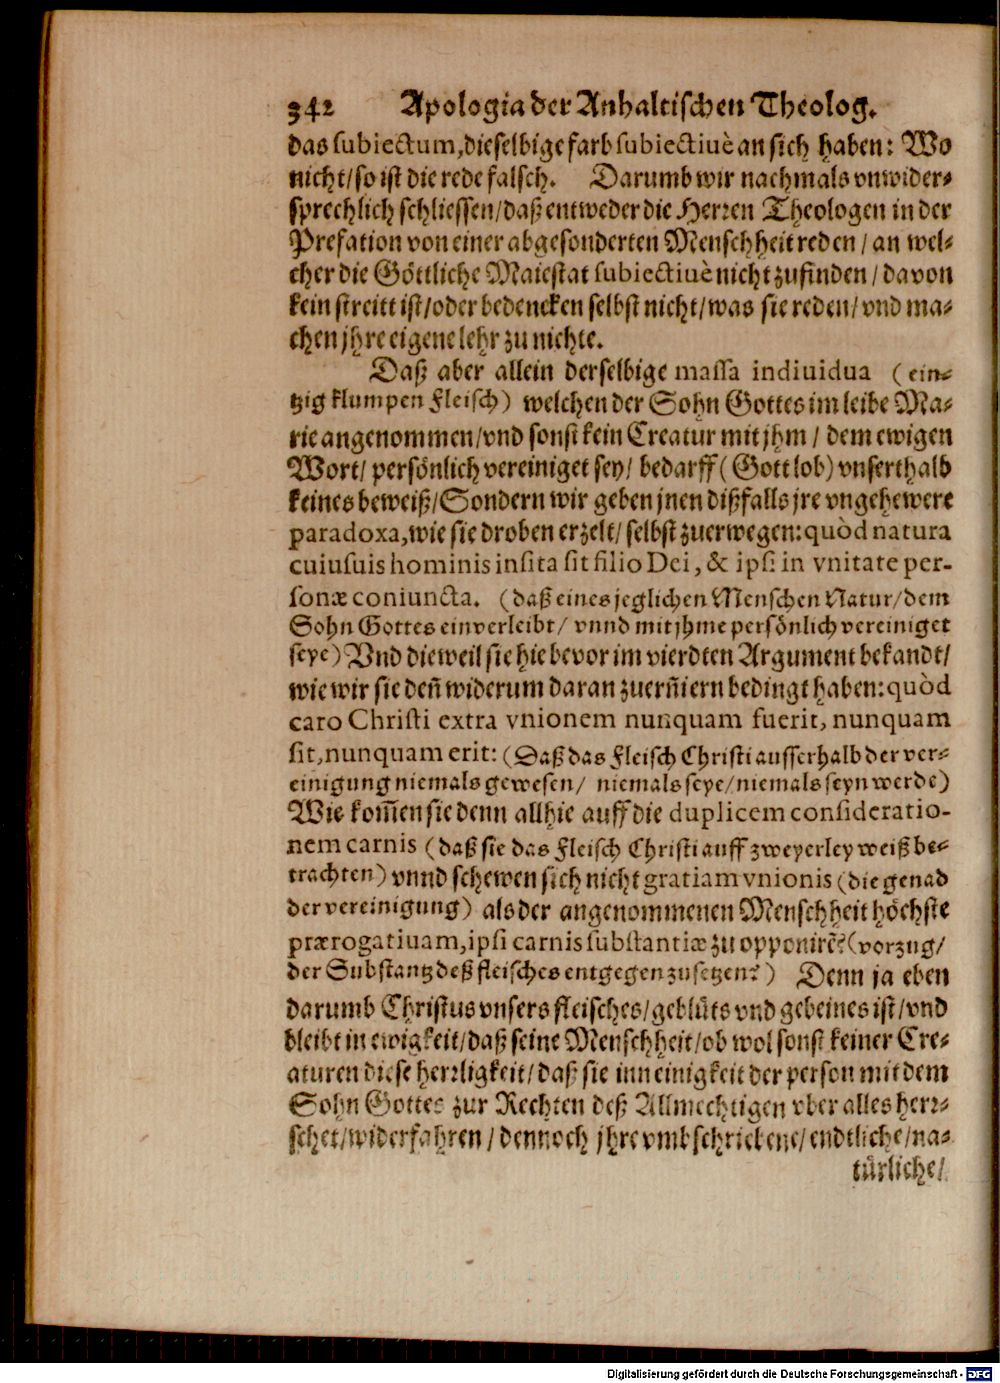 342 Apologia der Anhaltischen Theolog.
das subiectum, dieselbige farb subiectiuè an sich haben: Wo
nicht/ so ist die rede falsch. Darumb wir nachmals vnwider-
sprechlich schliessen/ daß entweder die Herren Theologen in der
Prefation von einer abgesonderten Menschheit reden/ an wel-
cher die Göttliche Maiestat subiectiuè nicht zufinden/ davon
kein streitt ist/ oder bedencken selbst nicht/ was sie reden/ vnd ma-
chen jhre eigene lehr zu nichte.
Daß aber allein derselbige massa indiuidua (ein-
tzig klumpen Fleisch) welchen der Sohn Gottes im leibe Ma-
rie angenommen/ vnd sonst kein Creatur mit jhm/ dem ewigen
Wort/ persönlich vereiniget sey/ bedarff (Gott lob) vnserthalb
keines beweiß/ Sondern wir geben jnen dißfalls jre vngehewere
paradoxa, wie sie droben erzelt/ selbst zuerwegen: quòd natura
cuiusuis hominis insita sit filio Dei, & ipsi in vnitate per-
sonæ coniuncta. (daß eines jeglichen Menschen Natur/ dem
Sohn Gottes einverleibt/ vnnd mit jhme persönlich vereiniget
seye) Vnd dieweil sie hie bevor im vierdten Argument bekandt/
wie wir sie deñ widerum daran zuerĩñern bedingt haben: quòd
caro Christi extra vnionem nunquam fuerit, nunquam
sit, nunquam erit: (Daß das Fleisch Christi ausserhalb der ver-
einigung niemals gewesen/ niemals seye/ niemals seyn werde)
Wie kom̃en sie denn allhie auff die duplicem consideratio-
nem carnis (daß sie das Fleisch Christi auff zweyerley weiß be-
trachten) vnnd schewen sich nicht gratiam vnionis (die genad
der vereinigung) als der angenommenen Menschheit höchste
prærogatiuam, ipsi carnis substantiæ zu opponirẽ? (vorzug/
der Substantz deß fleisches entgegen zusetzen?) Denn ja eben
darumb Christus vnsers fleisches/ geblüts vnd gebeines ist/ vnd
bleibt in ewigkeit/ daß seine Menschheit/ ob wol sonst keiner Cre-
aturen diese herrligkeit/ daß sie inn einigkeit der person mit dem
Sohn Gottes zur Rechten deß Allmechtigen vber alles herr-
schet/ widerfahren/ dennoch jhre vmbschriebene/ endtliche/ na-
türliche/
Digitalisierung gefördert durch die Deutsche Forschungsgemeinschaft - DFG